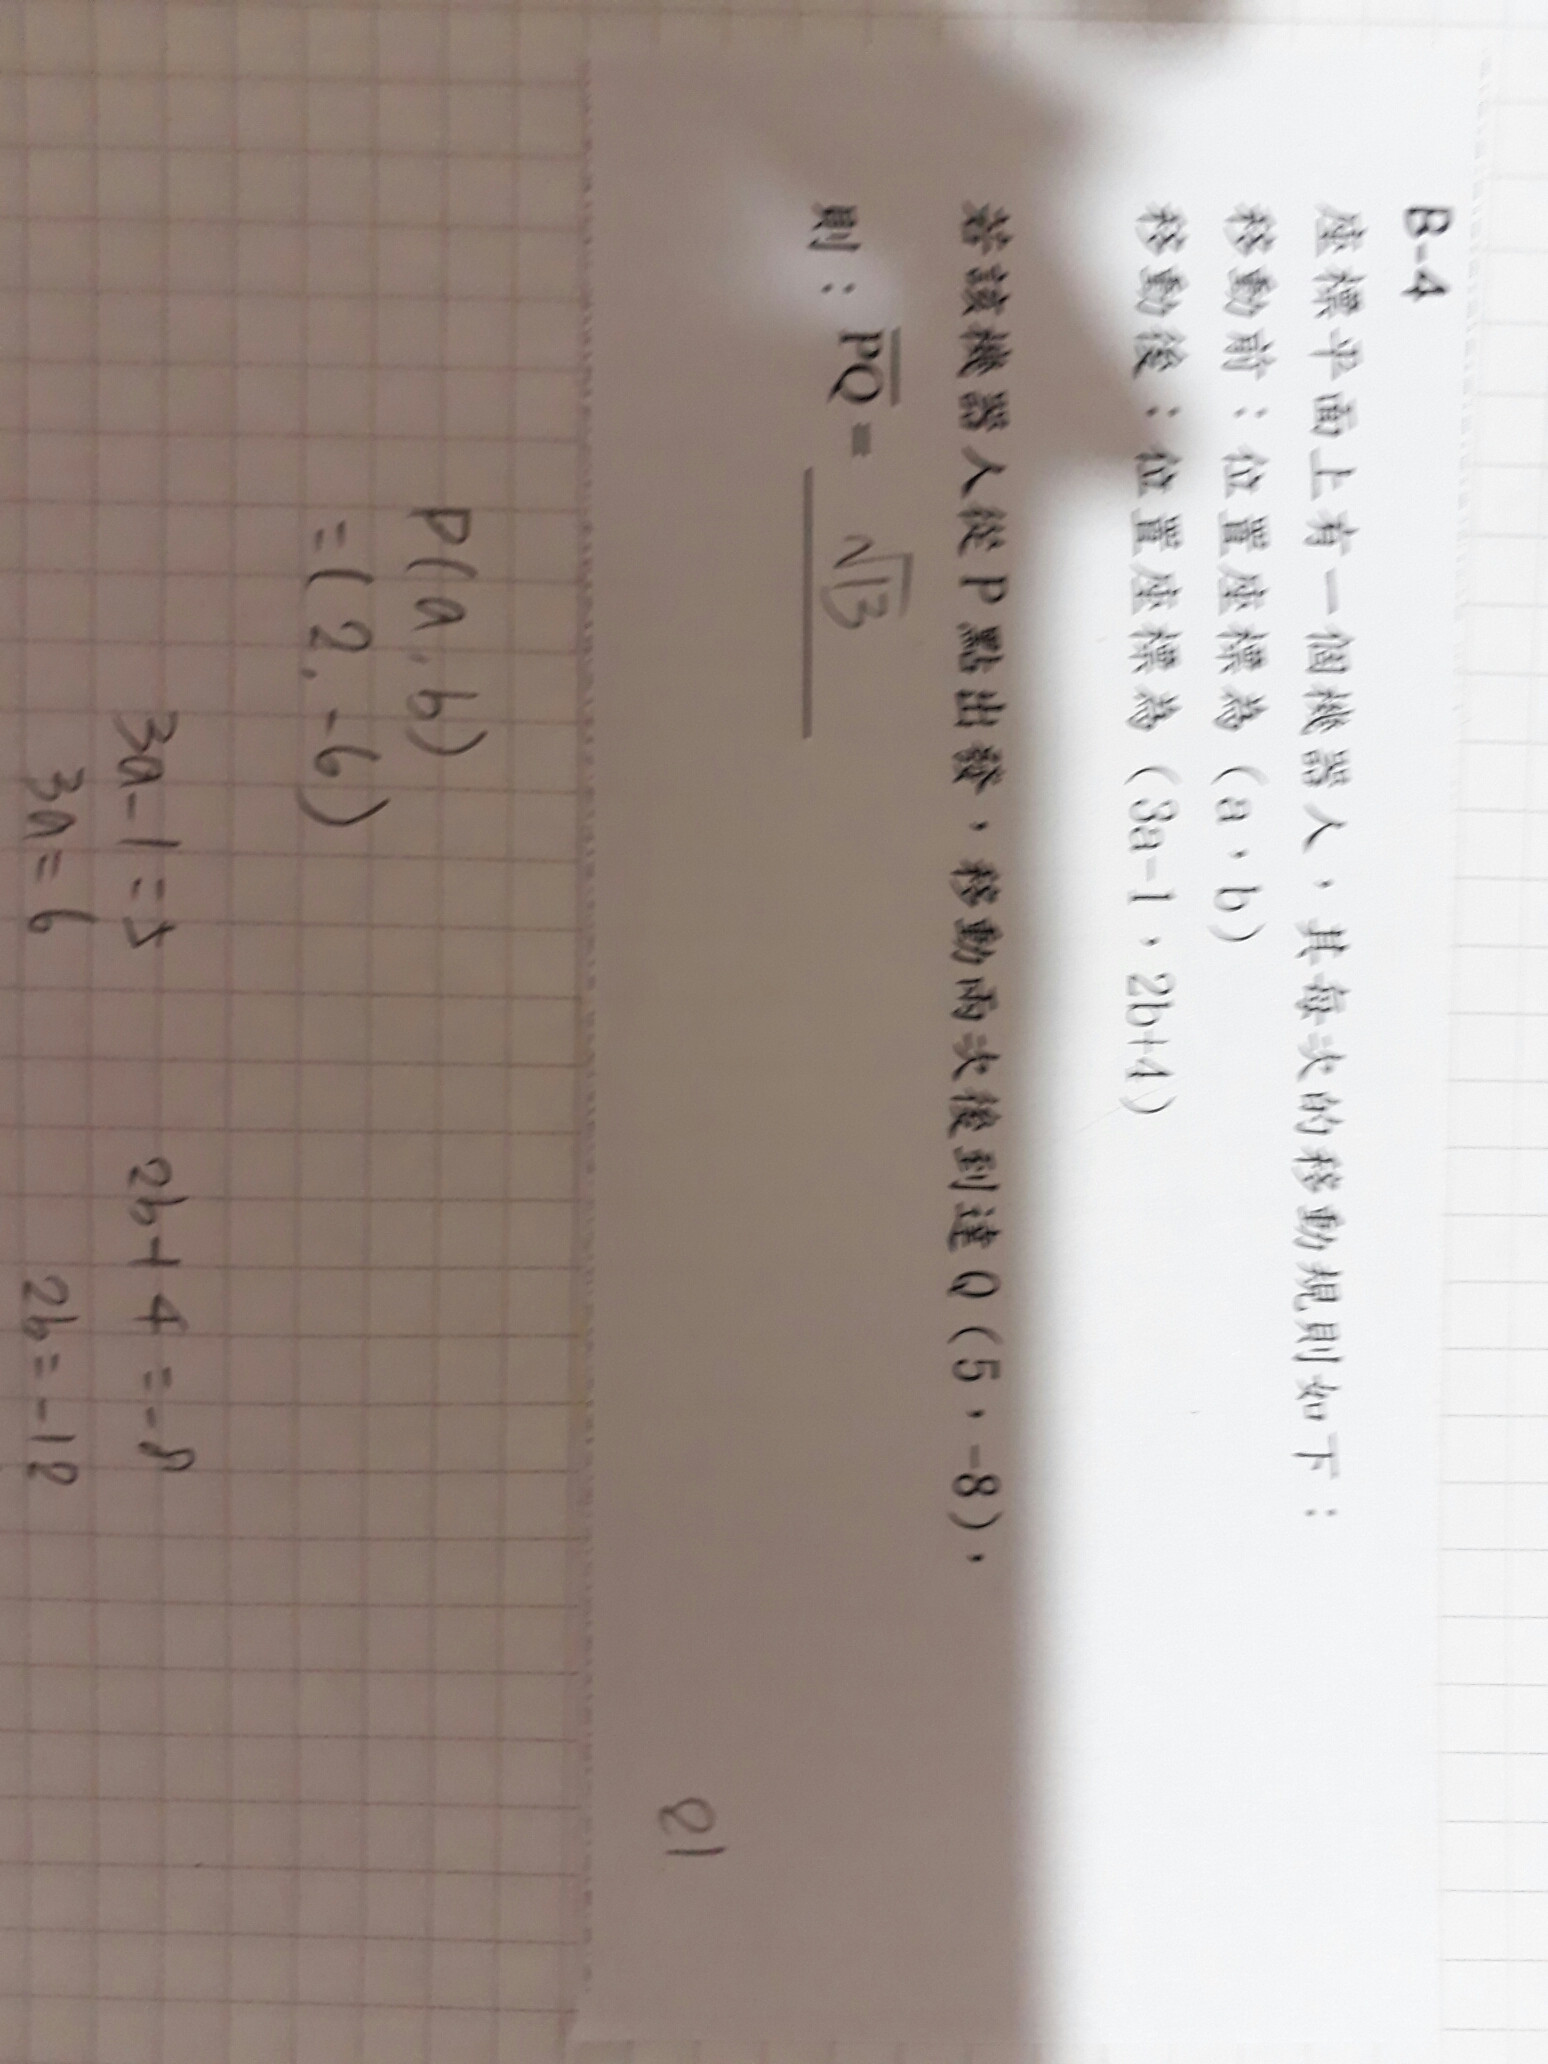 B-4
座標平面上有一個機器人，其每次的移動規則如下：
移動前：位置座標為（a，b）
移動後：位置座標為（3a-1，2b+4）
若該機器人從P點出發，移動兩次後到達Q（5，-8），
則：PQ = √13
21
P(a,b)
=(2,-6)
3a-1=5 2b+4=-8
3a=6 2b=-12